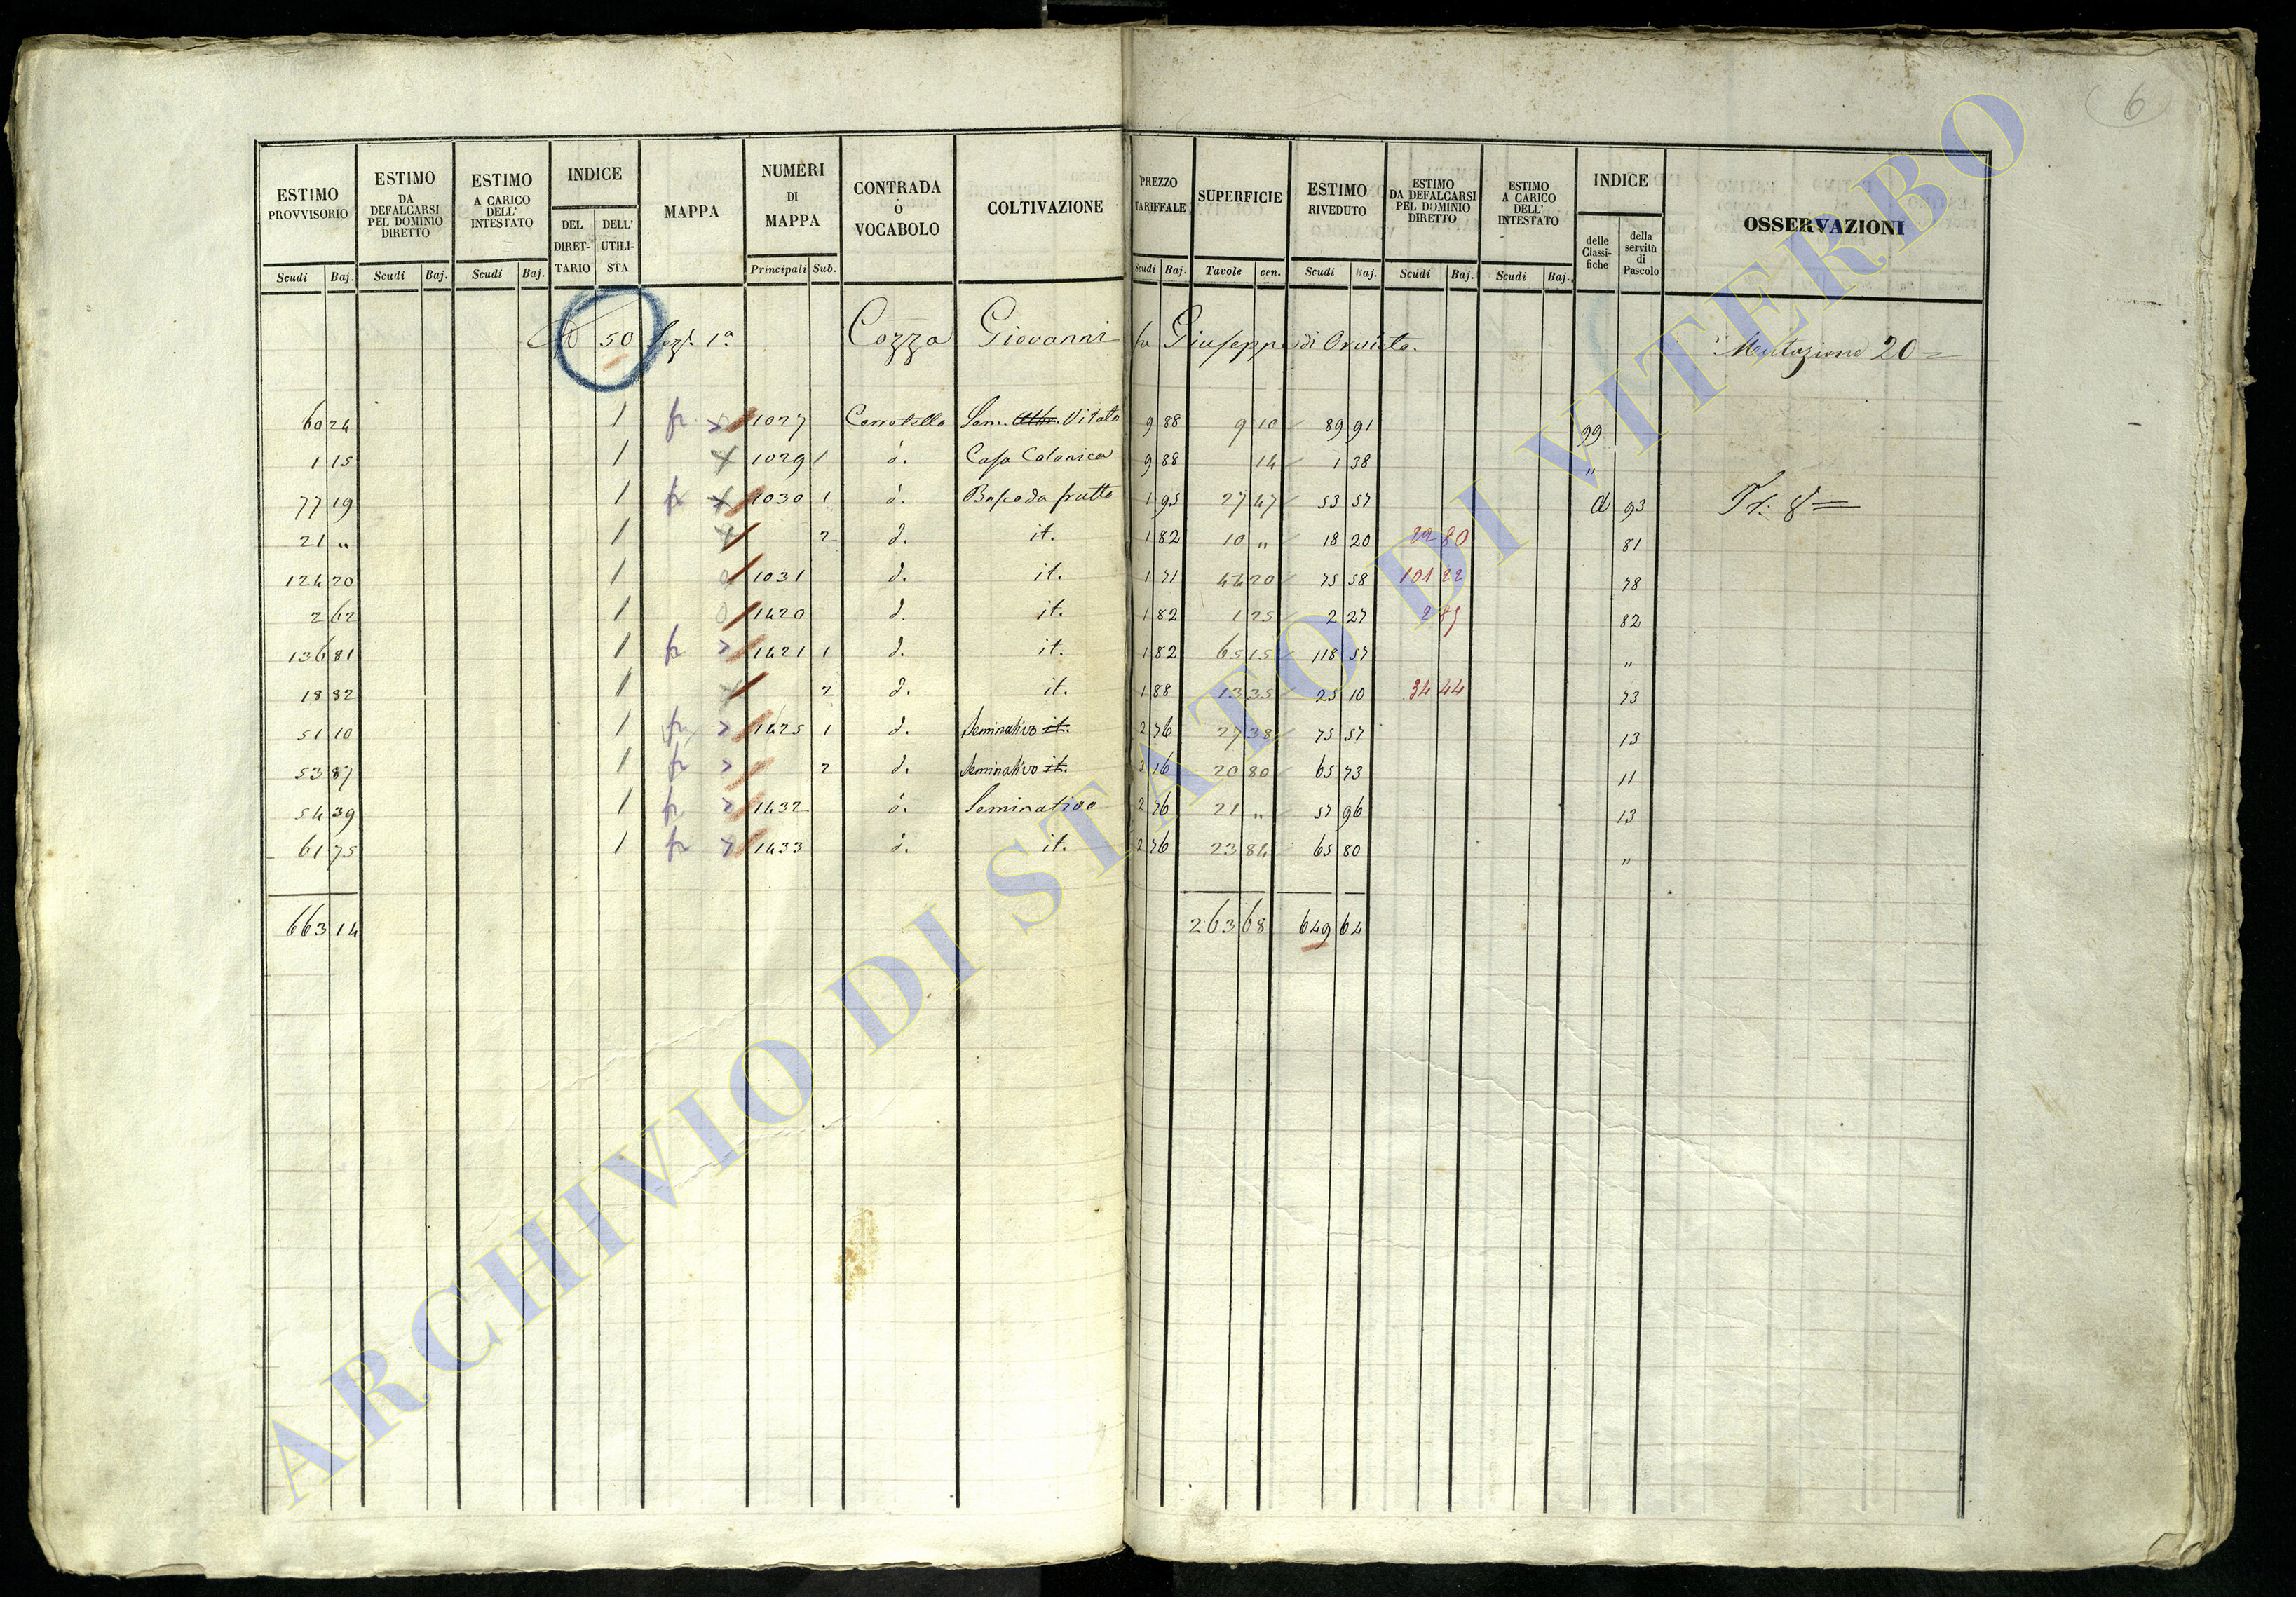 6
ESTIMO PROVVISORIO | ESTIMO DA DEFALCARSI PEL DOMINIO DIRETTO | ESTIMO A CARICO DELL' INTESTATO | INDICE | MAPPA | NUMERI DI MAPPA | CONTRADA O VOCABOLO | COLTIVAZIONE | PREZZO TARIFFALE | SUPERFICIE | ESTIMO RIVEDUTO | ESTIMO DA DEFALCARSI PEL DOMINIO DIRETTO | ESTIMO A CARICO DELL' INTESTATO | INDICE | OSSERVAZIONI
DEL DIRETTARIO | DELL' UTILISTA | delle Classifiche | della servitù di Pascolo
Scudi | Baj. | Scudi | Baj. | Scudi | Baj. | Principali | Sub. | Scudi | Baj. | Tavole | cen. | Scudi | Baj. | Scudi | Baj. | Scudi | Baj.
50 Sez. 1a Cozza Giovanni fu Giuseppe di Orvieto Mutazione 20
60 24 1 fr 1027 Sem. Vitato 9 88 9 10 89 91 99
1 15 1 1029 1 d. Casa Colonica 9 88 14 1 38 "
77 19 1 fr 1030 1 d. Bosco da frutto 1 95 27 47 53 57 93
21 " 1 2 d. it. 1 82 10 " 18 20 81
124 20 1 1031 d. it. 1 71 44 20 75 58 101 22 78
2 62 1 1420 d. it. 1 82 1 25 2 27 82
136 81 1 fr 1421 1 d. it. 1 82 65 15 118 57 "
18 82 1 2 d. it. 1 88 13 35 25 10 34 44 73
51 10 1 fr 1425 1 d. Seminativo it. 2 76 27 38 75 57 13
53 87 1 fr 2 d. Seminativo it. 3 16 20 80 65 73 11
54 39 1 fr 1432 d. Seminativo 2 76 21 " 57 96 13
61 75 1 fr 1433 d. it. 2 76 23 84 65 80 "
663 14 263 68 649 64
ARCHIVIO DI STATO DI VITERBO